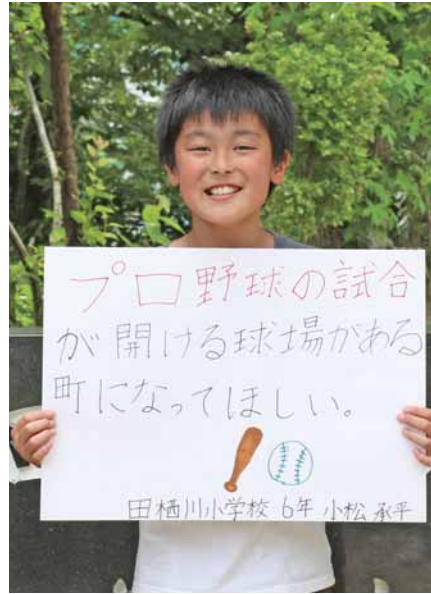 プロ野球の試合
が開ける球場がある
町になってほしい。
田栖川小学校 6年 小松 承平